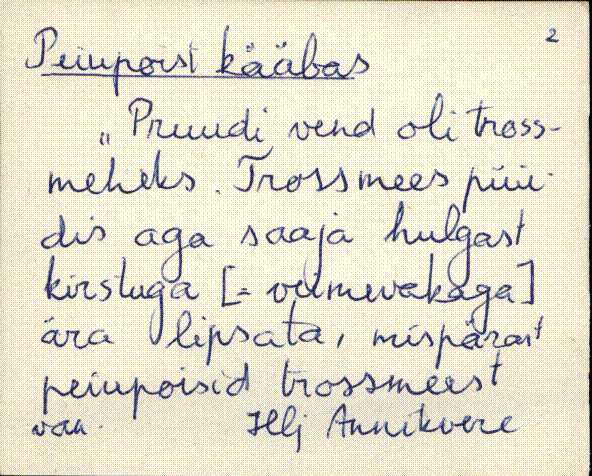 2
Peiupoist kääbas
„Pruudi vend oli tross-
meheks. Trossmees püü-
dis aga saaja hulgast
kirstuga [= veimevakaga]
ära lipsata, mispärast
peiupoisid trossmeest
van. Hlj Annikvere